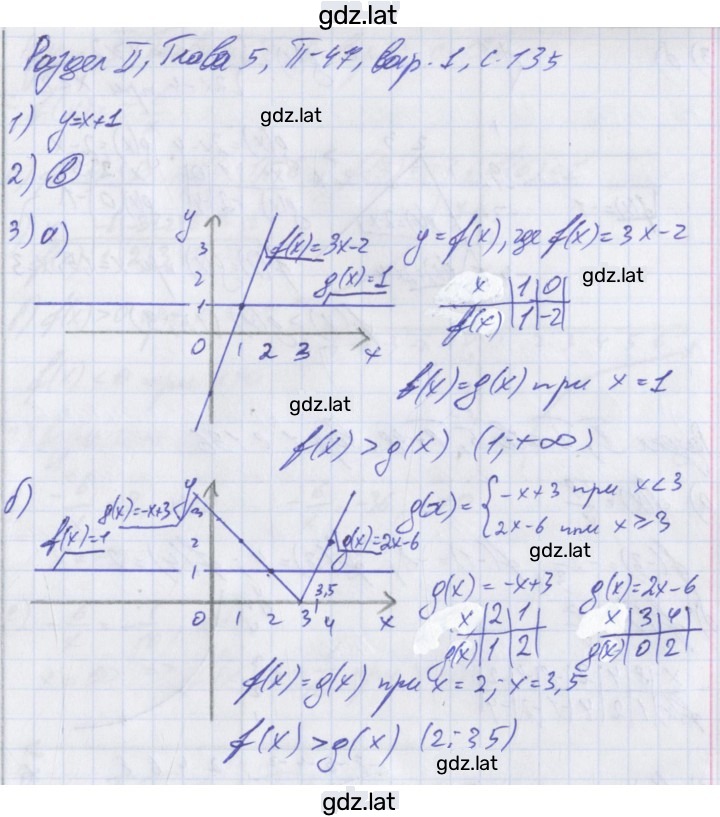 gdz.lat
Раздел II, Глава 5, П-47, вар. 1, с. 135
gdz.lat
1) y=x+1
2) в
3) а)
y
3
2
1
0 1 2 3 x
f(x)=3x-2
g(x)=1
y=f(x), где f(x)=3x-2
gdz.lat
x | 1 | 0
f(x) | 1 | -2
f(x)=g(x) при x=1
gdz.lat
f(x)>g(x) (1;+∞)
б)
y
3
2
1
0 1 2 3 3,5 4 x
g(x)=-x+3
f(x)=1
g(x)=2x-6
g(x)={-x+3 при x<3
2x-6 при x⩾3
gdz.lat
g(x)=-x+3
x | 2 | 1
g(x) | 1 | 2
g(x)=2x-6
x | 3 | 4
g(x) | 0 | 2
f(x)=g(x) при x=2; x=3,5
f(x)>g(x) (2;3,5)
gdz.lat
gdz.lat